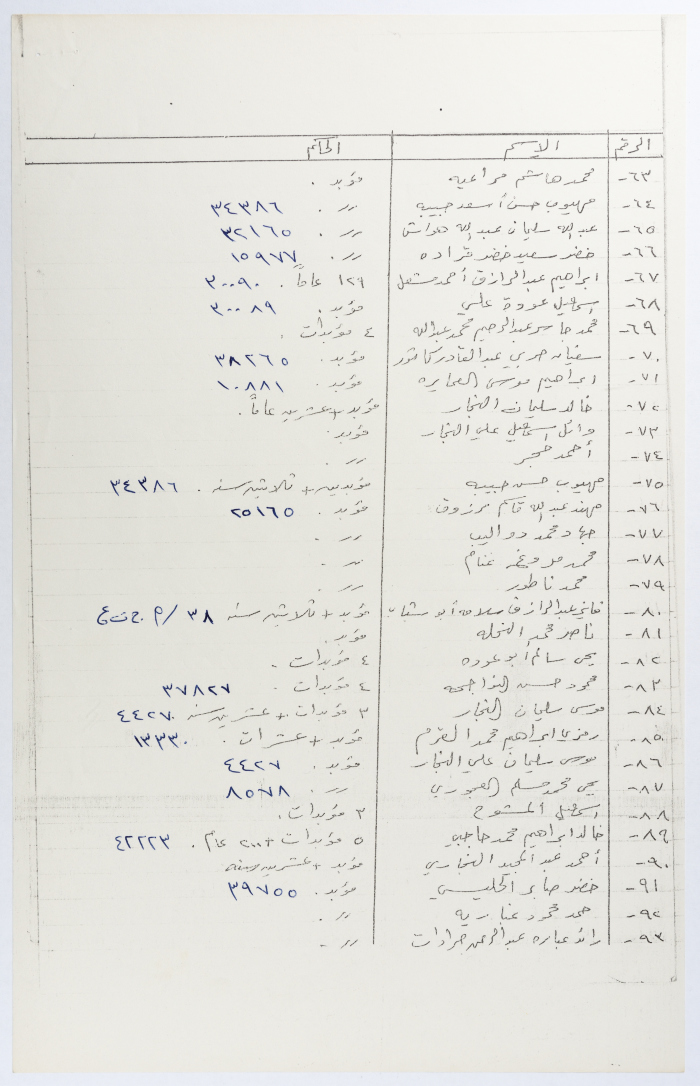 الرقم الإسم الحكم
٦٣- محمد هاشم مراعيه مؤبد .
٦٤- مهيوب حسن أسعد حبيبه 〃 . ٣٤٣٨٦
٦٥- عبد الله سليمان عبد الله هواش 〃 . ٣٢١٦٥
٦٦- خضر سعيد خضر قراده 〃 . ١٥٩٧٧
٦٧- ابراهيم عبد الرازق أحمد مشعل ١٢٩ عاماً . ٣٠٠٩٠
٦٨- اسماعيل عودة علي مؤبد . ٣٠٠٨٩
٦٩- محمد جاسر عبد الرحيم محمد عبد الله ٤ مؤبدات .
٧٠- سفيان حربي عبد القادر مؤبد . ٣٨٢٦٥
٧١- ابراهيم موسى العمايره مؤبد . ١٠٨٨١
٧٢- خالد سليمان النجار مؤبد + عشرين عاماً .
٧٣- وائل اسماعيل علي النجار مؤبد .
٧٤- أحمد 〃 .
٧٥- مهيوب حسن حبيبه مؤبدين + ثلاثين سنه . ٣٤٣٨٦
٧٦- مهند عبد الله قاسم مرزوق مؤبد . ٢٥١٦٥
٧٧- جهاد محمد دواليب 〃 .
٧٨- محمد غنام 〃 .
٧٩- محمد ناطور 〃 .
٨٠- عبد الرازق سلامه أبو مؤبد + ثلاثين سنه ٣٨
٨١- ناصر محمد النحله مؤبد .
٨٢- يحي سالم أبو عوده ٤ مؤبدات .
٨٣- محمود حسن النواجحه ٤ مؤبدات . ٣٧٨٢٧
٨٤- موسى سليمان النجار ٣ مؤبدات + عشرين سنه ٤٤٢٧٠
٨٥- رمزي ابراهيم محمد القرم مؤبد + عشرات . ١٣٣٣٠
٨٦- موسى سليمان علي النجار مؤبد . ٤٤٢٧
٨٧- يحي محمد مسلم 〃 . ٨٥٧٨
٨٨- اسماعيل المشوح ٣ مؤبدات .
٨٩- خالد ابراهيم محمد حاجبي ٥ مؤبدات + ٢٠٠ عام . ٤٢٢٢٣
٩٠- أحمد عبد المجيد النجاري مؤبد + عشرين سنه
٩١- خضر صابر الخليسي مؤبد . ٣٩٧٥٥
٩٢- حمد محمود عناريه 〃 .
٩٣- رائد عباره عبد الرحمن جرادات 〃 .